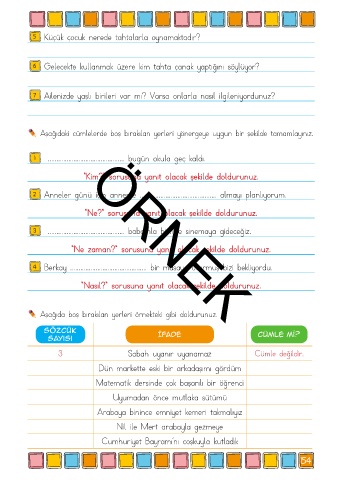 5 Küçük çocuk nerede tahtalarla oynamaktadır?
6 Gelecekte kullanmak üzere kim tahta çanak yaptığını söylüyor?
7 Ailenizde yaşlı birileri var mı? Varsa onlarla nasıl ilgileniyordunuz?
Aşağıdaki cümlelerde boş bırakılan yerleri yönergeye uygun bir şekilde tamamlayınız.
1 ........................................ bugün okula geç kaldı.
"Kim?" sorusuna yanıt olacak şekilde doldurunuz.
2 Anneler günü için anneme ........................................ almayı planlıyorum.
"Ne?" sorusuna yanıt olacak şekilde doldurunuz.
3 ........................................ babamla birlikte sinemaya gideceğiz.
"Ne zaman?" sorusuna yanıt olacak şekilde doldurunuz.
4 Berkay ........................................ bir masaya oturmuş bizi bekliyordu.
"Nasıl?" sorusuna yanıt olacak şekilde doldurunuz.
ÖRNEK
Aşağıda boş bırakılan yerleri örnekteki gibi doldurunuz.
SÖZCÜK SAYISI İFADE CÜMLE Mİ?
3 Sabah uyanır uyanamaz Cümle değildir.
Dün markette eski bir arkadaşımı gördüm
Matematik dersinde çok başarılı bir öğrenci
Uyumadan önce mutlaka sütümü
Arabaya binince emniyet kemeri takmalıyız
Nil ile Mert arabayla gezmeye
Cumhuriyet Bayramı'nı coşkuyla kutladık
54